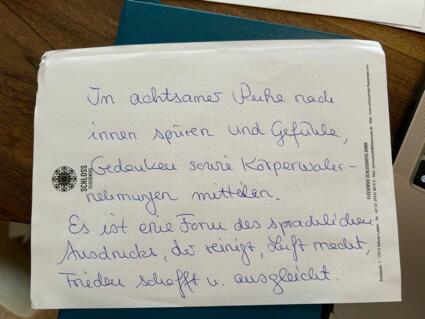 In achtsamer Ruhe nach
innen spüren und Gefühle,
Gedanken sowie Körperwahr-
nehmungen mitteilen.
Es ist eine Form des sprachlichen
Ausdrucks, der reinigt, Luft macht,
Frieden schafft u. ausgleicht.
SCHLOSS